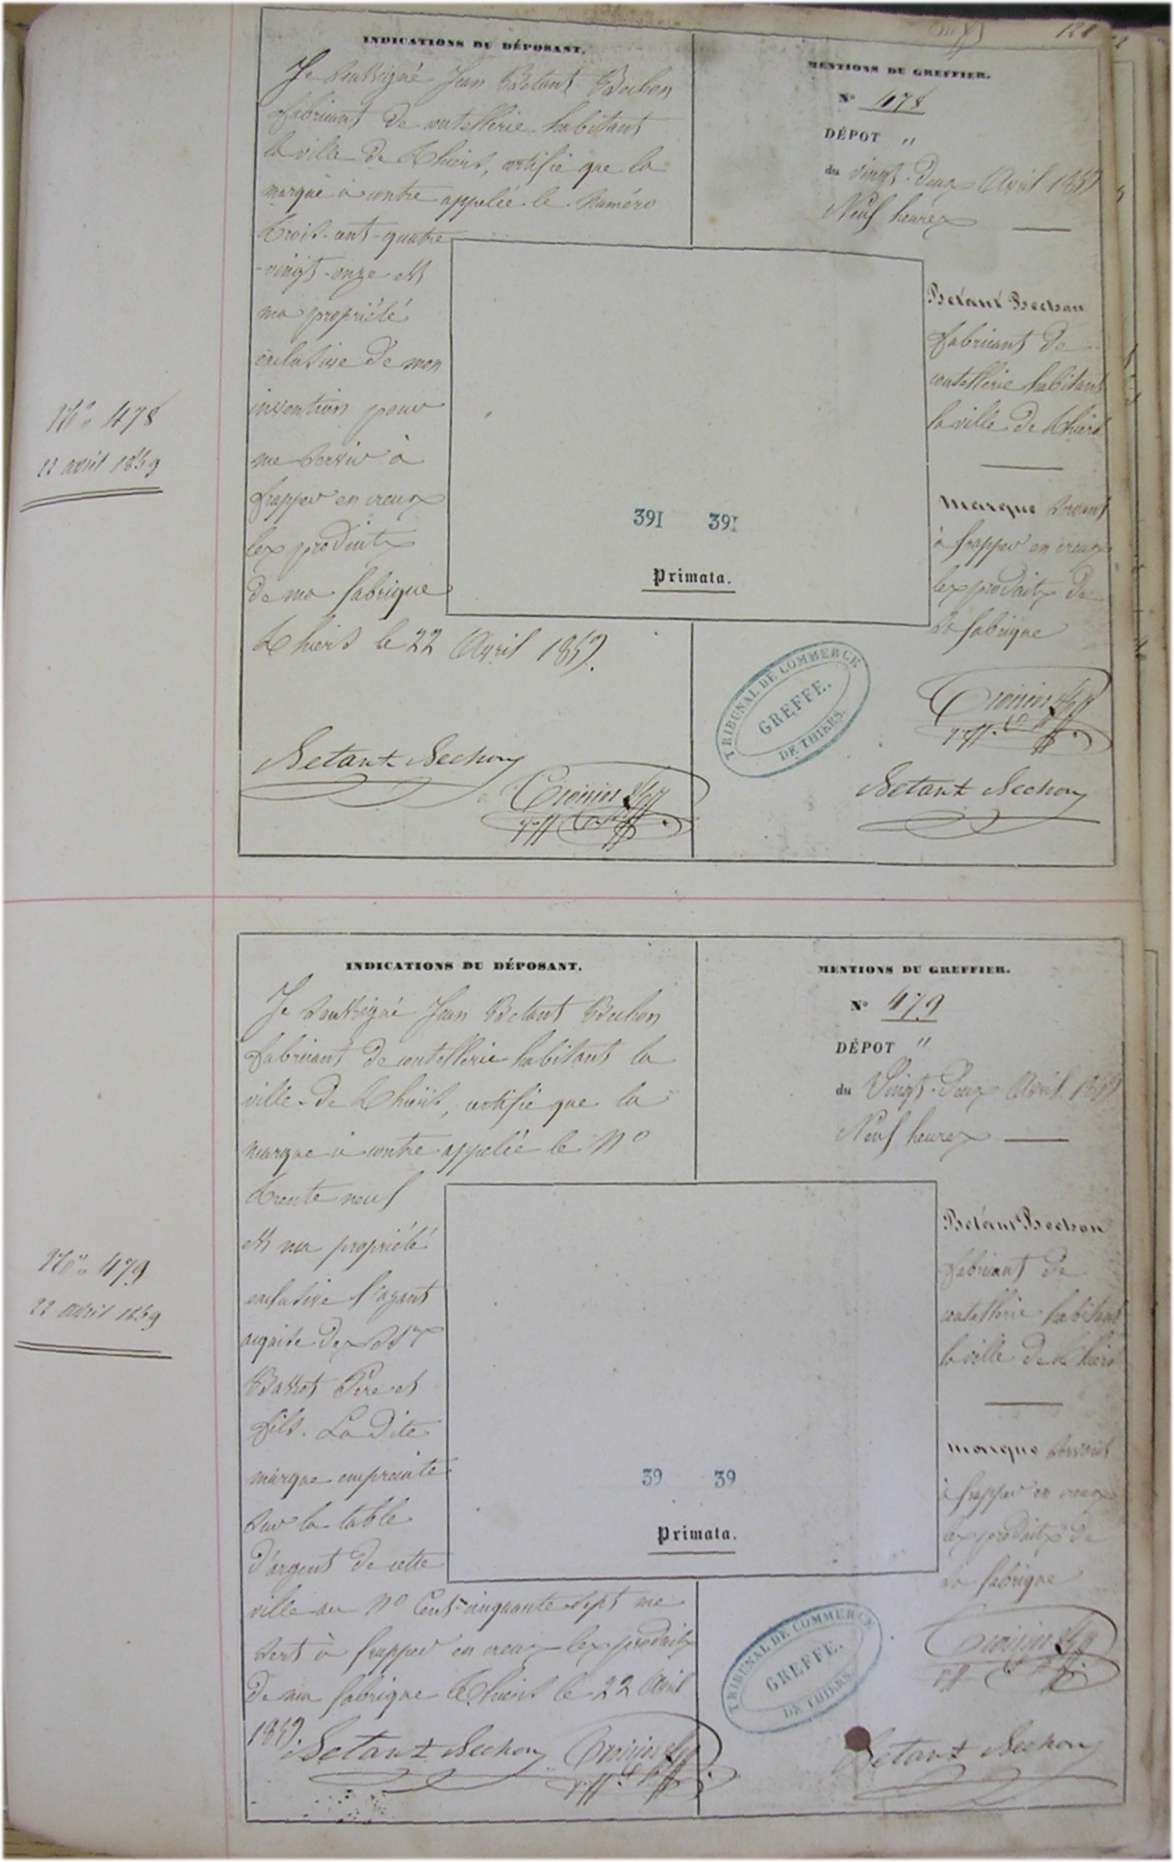 128
INDICATIONS DU DÉPOSANT.
Je soussigné Jean Betant Bechon
fabricant de coutellerie habitant
la ville de Thiers, certifie que la
marque ci contre appelée le Numéro
trois-cent-quatre
-vingt-onze est
ma propriété
exclusive de mon
invention pour
me servir à
frapper en creux
les produits
de ma fabrique
Thiers le 22 Avril 1859.
Betant Bechon
MENTIONS DU GREFFIER.
N° 478
DÉPOT "
du vingt-deux Avril 1859
Neuf heures
Betant Bechon
fabricant de
coutellerie habitant
la ville de Thiers
Marque servant
à frapper en creux
les produits de
sa fabrique
Betant Bechon
391 391
Primata.
TRIBUNAL DE COMMERCE
GREFFE.
DE THIERS.
N° 478
22 avril 1859
INDICATIONS DU DÉPOSANT.
Je soussigné Jean Betant Bechon
fabricant de coutellerie habitant la
ville de Thiers, certifie que la
marque ci contre appelée le N°
trente neuf
est ma propriété
exclusive l'ayant
acquise des Srs
Père et
fils. La dite
marque empreinte
sur la table
d'argent de cette
ville au N° Cent-cinquante-sept me
sert à frapper en creux les produits
de ma fabrique Thiers le 22 Avril
1859. Betant Bechon
MENTIONS DU GREFFIER.
N° 479
DÉPOT "
du Vingt-deux Avril 1859
Neuf heures
Betant Bechon
fabricant de
coutellerie habitant
la ville de Thiers
Marque servant
à frapper en creux
les produits de
sa fabrique
Betant Bechon
39 39
Primata.
TRIBUNAL DE COMMERCE
GREFFE.
DE THIERS.
N° 479
22 avril 1859